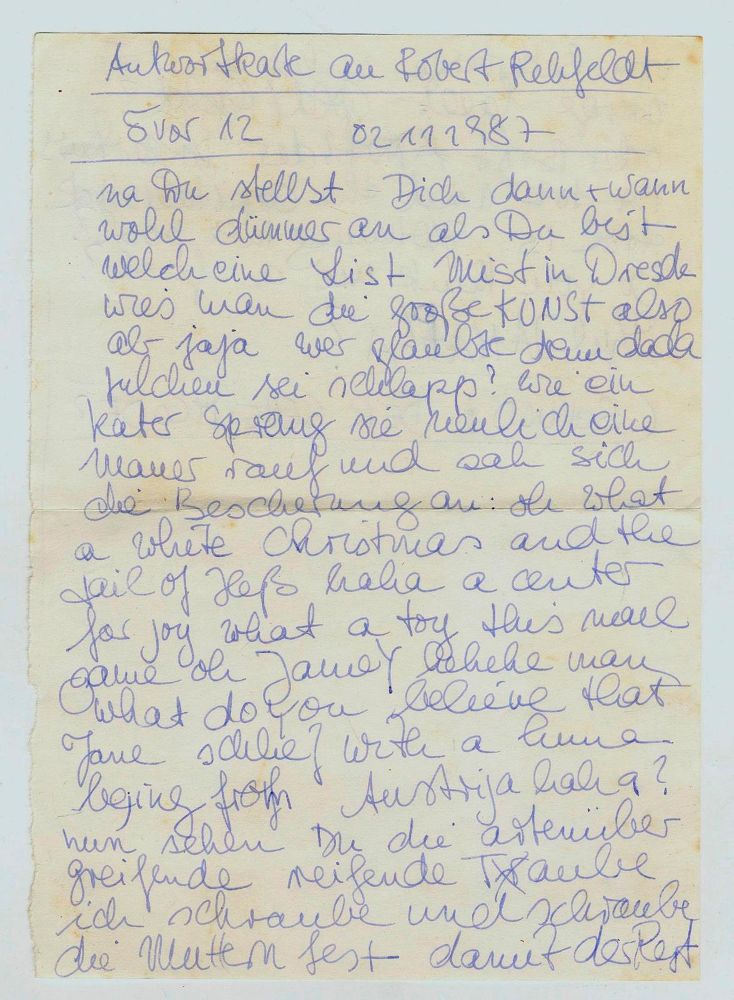 Antwortkarte an Robert Rehfeldt
5 vor 12 02111987
na Du stellst Dich dann + wann
wohl dümmer an als Du bist
welch eine List Mist in Dresde
wies man die große KUNST also
ab jaja wer glaubte denn dada
julchen sei schlapp? wie ein
kater sprang sie neulich eine
Mauer rauf und sah sich
die Bescherung an: oh what
a white Christmas and the
jail of Heß haha a center
for joy what a toy this mail
game oh Jamey hehehe man
what do you believe that
Jane schlief with a huma
beging from Austrija haha?
nun sehen Du die artenüber
greifende reifende Traube
ich schraube und schraube
die Muttern fest damit der Rest